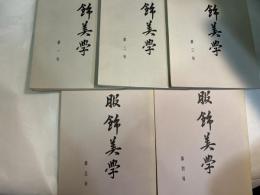 飾美學
第一号
飾美學
第二号
飾美學
第三号
服飾美學
第五号
服飾美學
第四号